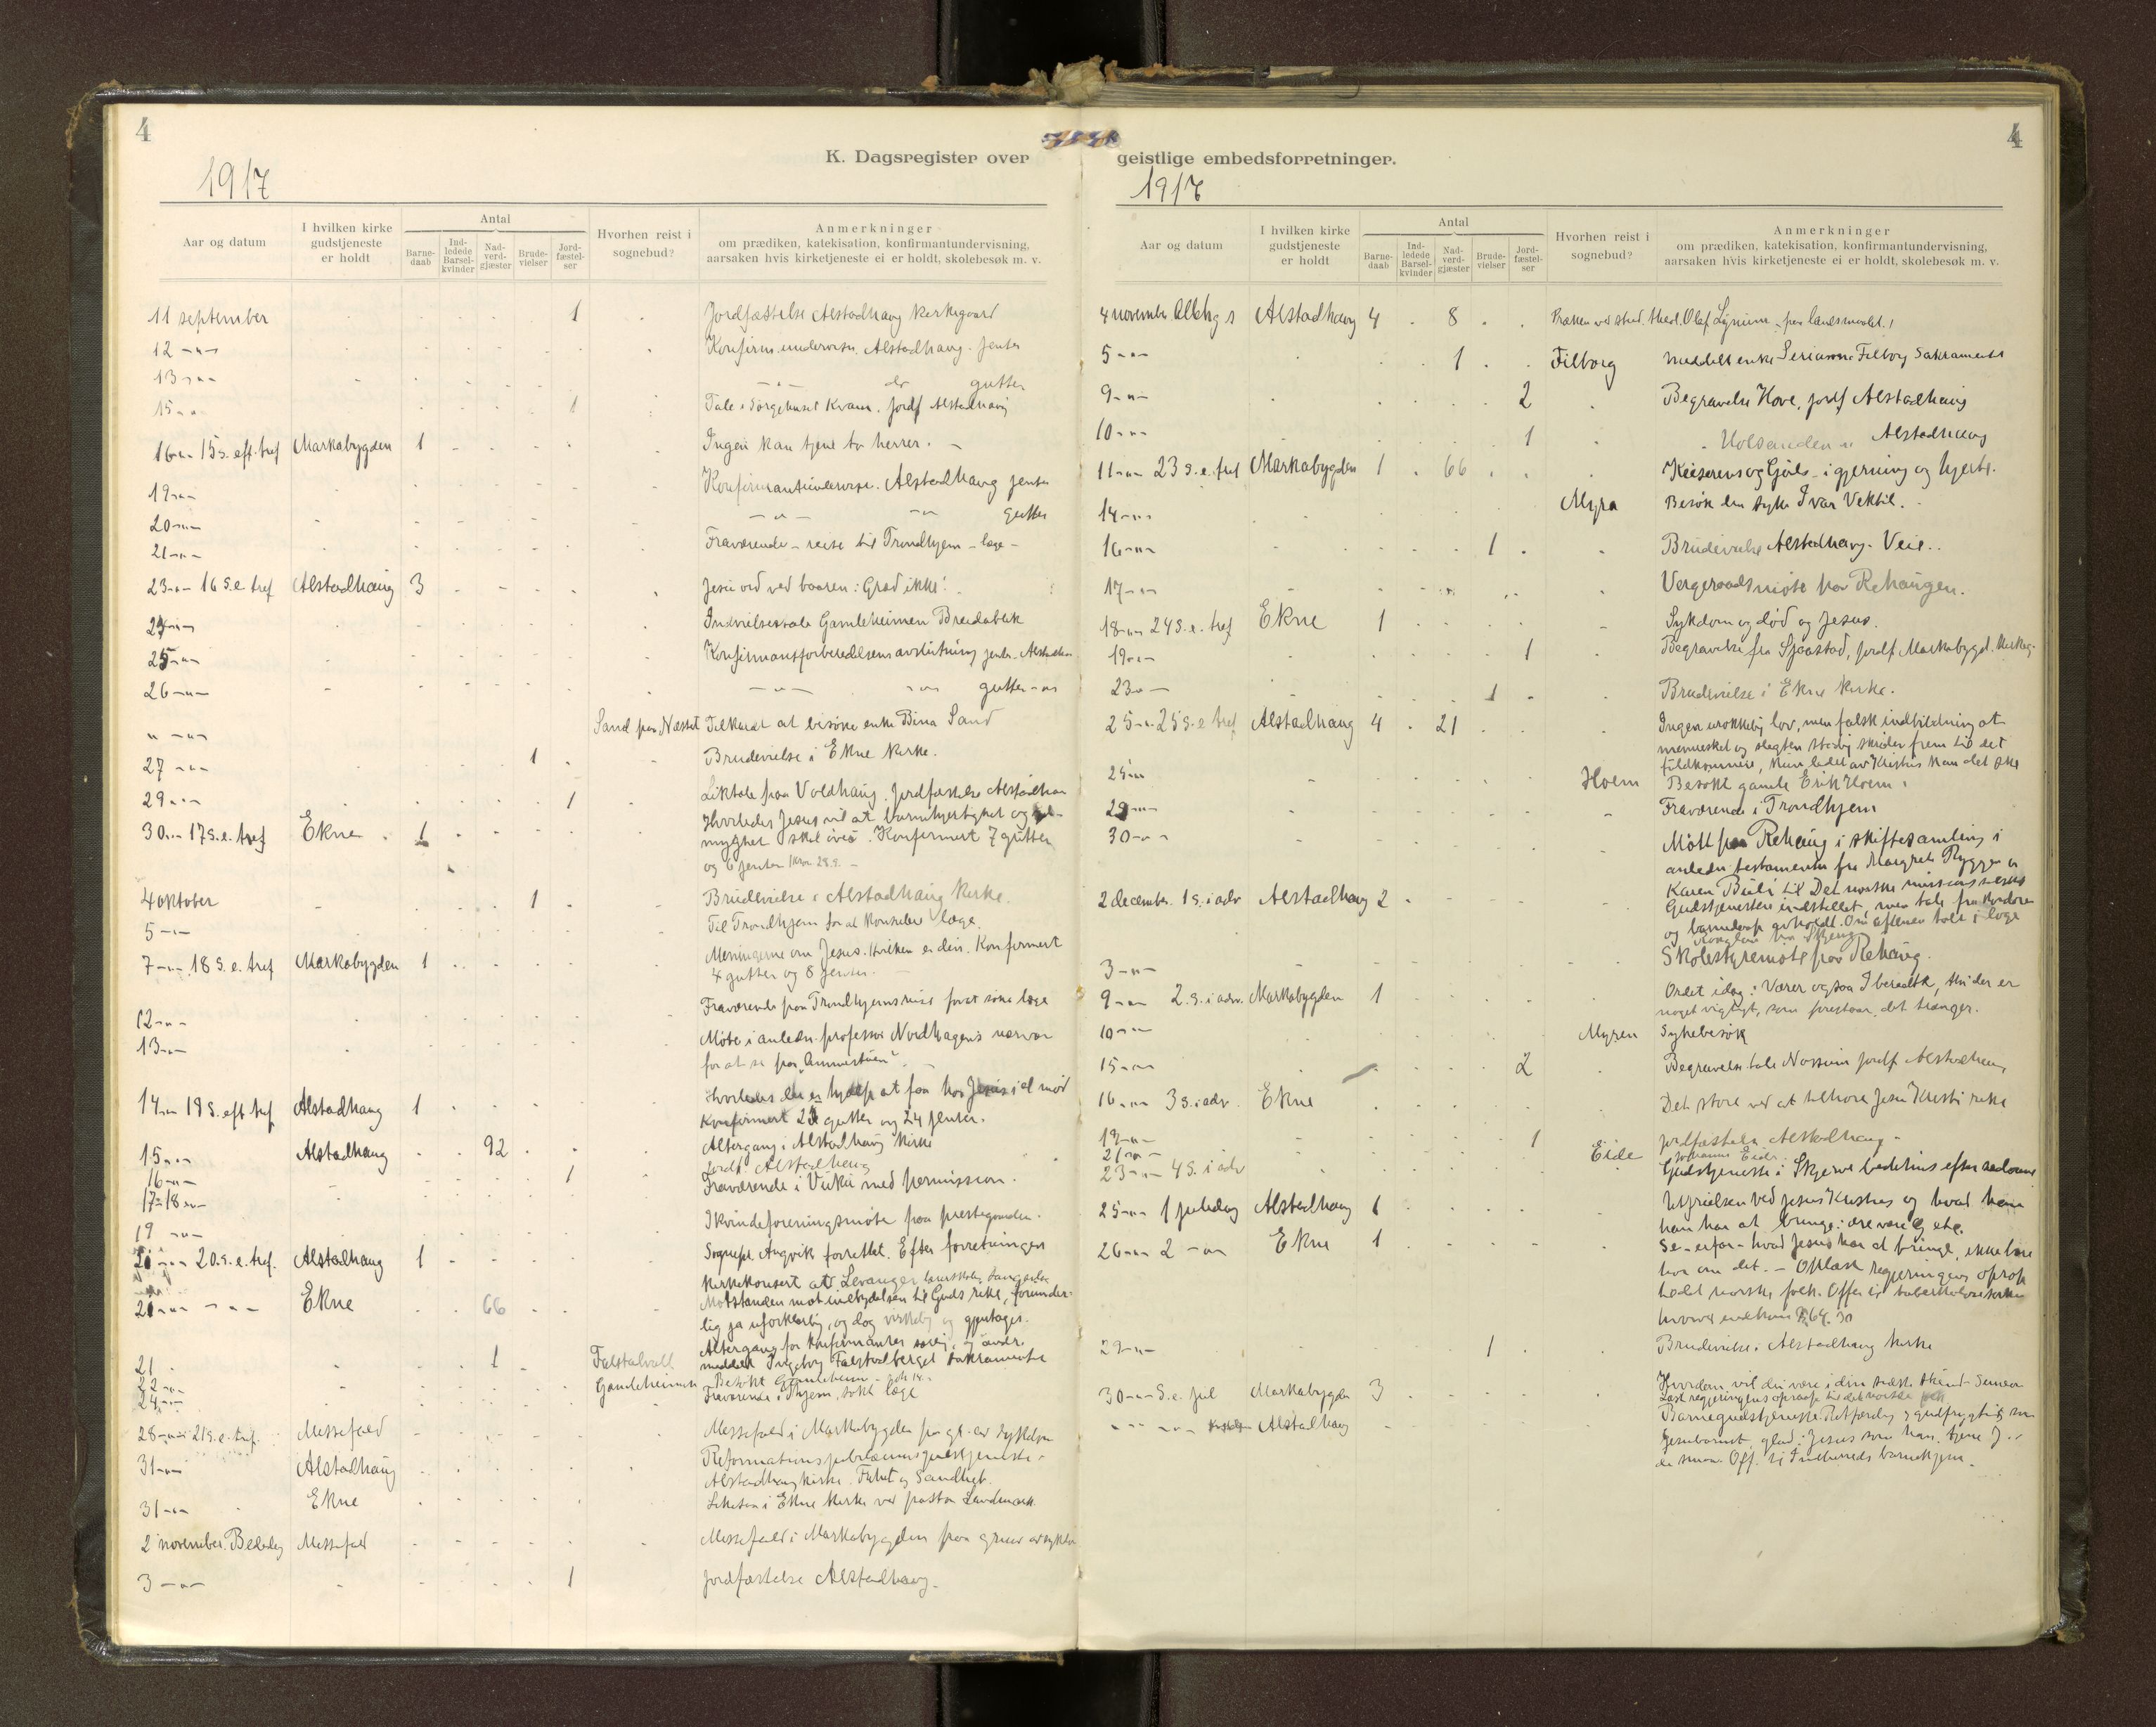 4
K. Dagsregister over
1917
Aar og datum
I hvilken kirke gudstjeneste er holdt
Antal
Barne-daab
Ind-ledede Barsel-kvinder
Nad-verd-gjæster
Brude-vielser
Jord-fæstel-ser
Hvorhen reist i sognebud?
Anmerkninger
om prædiken, katekisation, konfirmantundervisning,
aarsaken hvis kirketjeneste ei er holdt, skolebesøk m. v.
11 september 1 Jordfæstelse Alstadhaug kirkegaard
12 -"- Konfirm.undervisn. Alstadhaug. Jenter
13 -"- -"- do gutter
15 -"- 1 Tale i Sørgehuset Kvam. Jordf Alstadhaug
16 -"- 15 s. eft. tref Markabygden 1 Ingen kan tjene to herrer. -
19 -"- Konfirmantundervisn. Alstadhaug jenter
20 -"- -"- -"- gutter
21 -"- Fraværende - reise til Trondhjem - læge -
23 -"- 16 s.e. tref Alstadhaug 3 Jesu ord ved baaren: Græd ikke!
24 -"- Indvielsestale Gamleheimen Breidablik
25 -"- Konfirmantforberedelsens avslutning jenter - Alstadhau
26 -"- -"- -"- gutter -"-
" -"- Sand paa Næsset Tilkaldt at besøke enke Bina Sand
27 -"- 1 Brudevielse i Ekne kirke.
29 -"- 1 Liktale paa Voldhaug. Jordfæstelse Alstadhau
30 -"- 17 s.e. tref Ekne 1 Hvorledes Jesus vil at barmhjertighet og
myghet skal øves. Konfirmert 7 gutter
og 6 jenter
4 oktober 1 Brudevielse i Alstadhaug kirke.
5 -"- Til Trondhjem for at konsulere læge.
7 -"- 18 s.e. tref Markabygden 1 Meningerne om Jesus. Hvilken er din. Konfirmert
4 gutter og 8 jenter.
12 -"- Fraværende paa Trondhjemsreise forat søke læge
13 -"- Møte i anledn. professor Nordhagens nærvær
for at se paa
14 -"- 19 s. eft. tref Alstadhaug 1 Hvorledes der er hjælp at faa hos Jesus
Konfirmert gutter og 24 jenter.
15 -"- Alstadhaug 92 Altergang i Alstadhaug kirke
16 -"- 1 Jordf. Alstadhaug
17-18 -"- Fraværende i Vuku med permission.
19 -"- I kvindeforeningsmøte paa prestegaarden.
21 -"- 20. s. e. tref. Alstadhaug 1 Sognepr. Angvik forrettet. Efter forretningen
Kirkekonsert
21 -"- -"- Ekne 66 Motstanden mot indbydelsen til Guds rike, forunder-
lig ja uforklarlig, og dog virkelig og gjentages.
Altergang for konfirmanter og andre
21 1 Falstadvald meddelt Ingeborg Falstadberget sakramentet
22 -"- Gamleheimen Besøkt Gamleheimen
24 -"- Fraværende i Thjem, søkt læge
28 -"- 21 s. e. tref. Messefald Messefald i Markabygden paa gr. av sykdom
31 -"- Alstadhaug Reformationsjubilæumsgudstjeneste i
Alstadhaug kirke. Frihet og Sandhet.
31 -"- Ekne Likesaa i Ekne kirke ved pastor Landmark
2 november. Bededag Messefald Messefald i Markabygden paa grund av sykdom
3 -"- 1 Jordfæstelse Alstadhaug.
4
geistlige embedsforretninger.
1917
Aar og datum
I hvilken kirke gudstjeneste er holdt
Antal
Barne-daab
Ind-ledede Barsel-kvinder
Nad-verd-gjæster
Brude-vielser
Jord-fæstel-ser
Hvorhen reist i sognebud?
Anmerkninger
om prædiken, katekisation, konfirmantundervisning,
aarsaken hvis kirketjeneste ei er holdt, skolebesøk m. v.
4 november Allehg s Alstadhaug 4 8 Præken ved stud. theol. Olaf Lynum - paa landsmaalet.
5 -"- 1 Filborg Meddelt enke Serianna Filborg Sakramentet
9 -"- 2 Begravelse Hove, jordf Alstadhaug
10 -"- 1 Holsanden " Alstadhaug
11 -"- 23 s. e. tref Markabygden 1 66 Keiserens og Guds - i gjerning og hjerte.
14 -"- Myra Besøk den syke Ivar Vektil.
16 -"- 1 Brudevielse Alstadhaug - Veie..
17 -"- Vergeraadsmøte paa Rehaugen.
18 -"- 24 s. e. tref Ekne 1 Sykdom og død og Jesus.
19 -"- 1 Begravelse fra Sjaastad, jordf Markabygd. kirkeg.
23 -"- 1 Brudevielse i Ekne kirke.
25 -"- 25 s. e. tref Alstadhaug 4 21 Ingen urokkelig lov, men falsk indbildning at
mennesket og slegten stadig skrider frem til det
fuldkomne, kun ledet av Kristus kan det ske
25 -"- Hoem Besøkt gamle Erik Hoem.
29 -"- Fraværende i Trondhjem
30 -"- Møtt paa Rehaug i skiftesamling i
anledn testamente fra Margrete Rygger og
Karen Buli til Det norske misjonsselskap
2 december. 1 s. i adv Alstadhaug 2 Gudstjenesten indstillet, men tale fra kordøren
og barnedaap avholdt. Om aftenen tale i loge
3 -"- Skolestyremøte paa Rehaug.
9 -"- 2. s. i adv. Markabygden 1 Ordet idag: Værer ogsaa I beredte, thi der er
noget vigtigt, som forestaar, det trænger.
10 -"- Myren Sykebesøk
15 -"- 2 Begravelse tale Nossum jordf Alstadhaug
16 -"- 3 s. i adv. Ekne Det store ved at tilhøre Jesu Kristi rike
19 -"- 1 Jordfæstelse Alstadhaug.
21 -"- Eide Johannes Eide.
23 -"- 4 s. i adv Gudstjeneste i Skjerve bedehus
25 -"- 1 juledag Alstadhaug 1 Utfrielsen ved Jesus Kristus og hvad
han har at bringe
26 -"- 2 -"- Ekne 1 Se - erfar - hvad Jesus har at bringe, ikke bare
hør om det. - Oplæst regjeringens oprop
til det norske folk. Offer til
29 -"- 1 Brudevielse i Alstadhaug kirke
30 -"- S. e. jul Markabygden 3 Hvordan vil du være i din
Læst regjeringens oprop til det norske folk
-"- -"- Alstadhaug Barnegudstjeneste. Retfærdig og gudfrygtig som
Jesubarnet, glad i Jesus som han, tjene J
de smaa. Off. til Indherreds barnehjem.